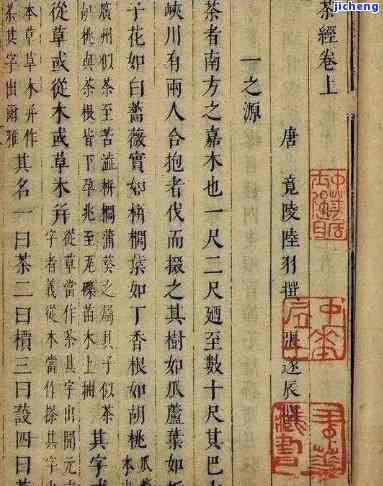 jicheng
茶經卷上
唐 竟陵陸羽撰 張遂辰閱
一之源
茶者南方之嘉木也一尺二尺廼至數十尺其巴山
峽川有兩人合抱者伐而掇之其樹如瓜蘆葉如
子花如白薔薇實如栟櫚葉如丁香根如胡桃 瓜
木出
廣州似茶至苦澁栟櫚蒲葵之屬其子似茶
胡桃與茶根皆下孕兆至瓦礫苗木上抽
其字或
從草或從木或草木并
從草當作茶其字出開元
字者義從木當作搽其
本草草木并作
荼其字出爾雅
其名一曰茶二曰檟三曰蔎四曰茗